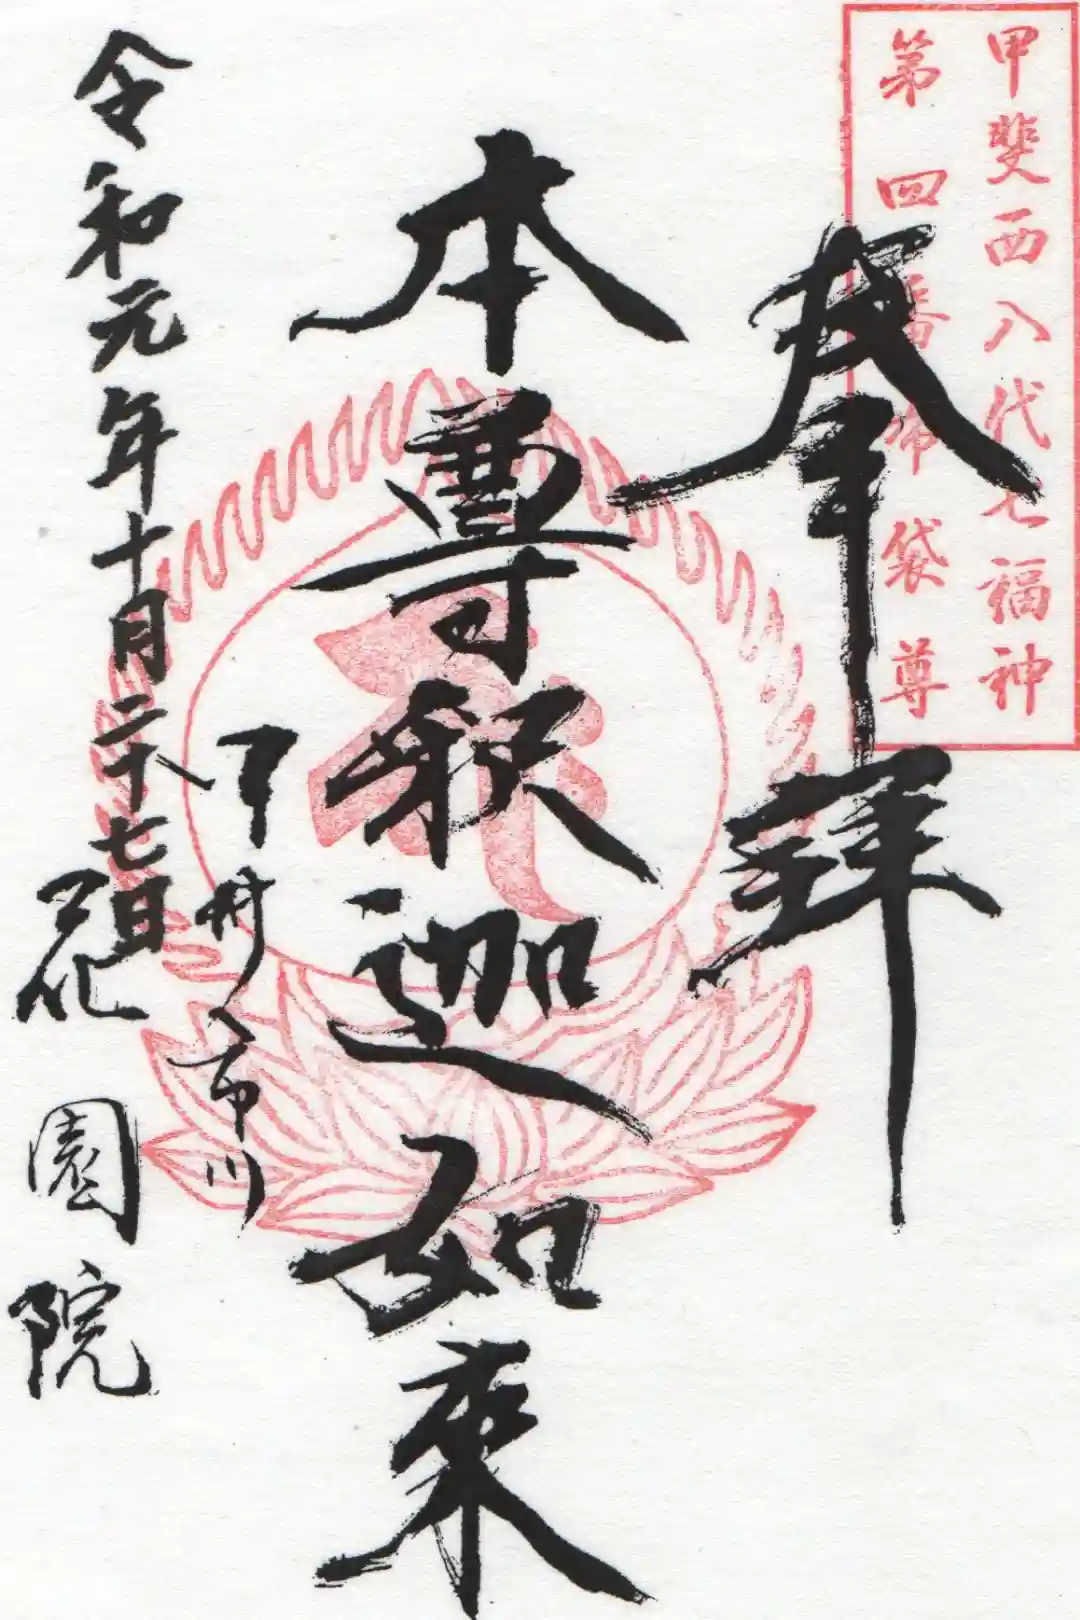 甲斐西八代七福神
第四番布袋尊
奉拝
本尊釈迦如来
令和元年十月二十七日
甲州市川
花園院